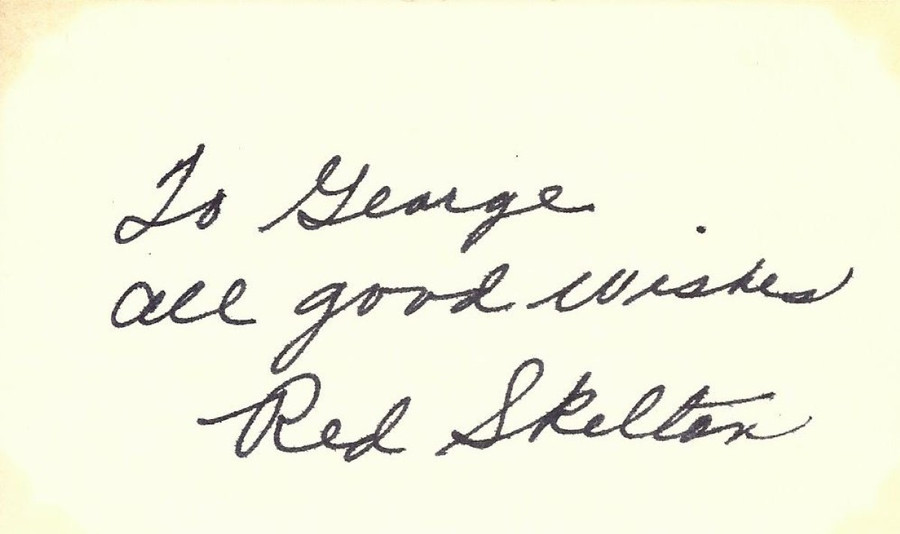 To George
all good wishes
Red Skelton